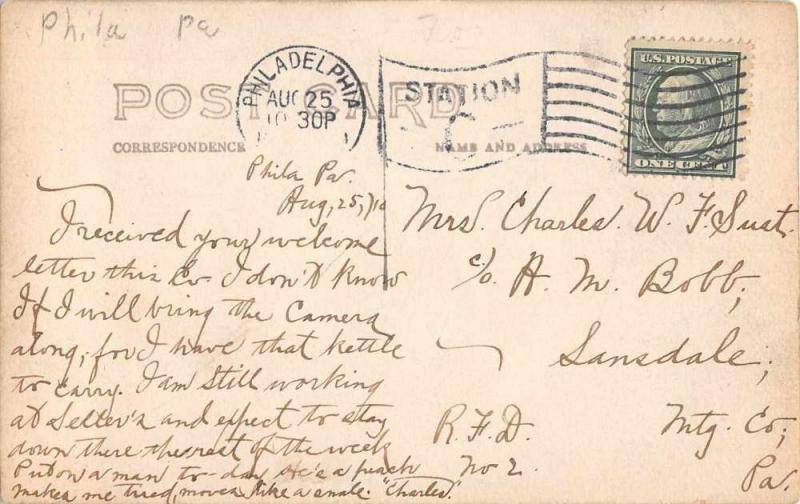 Phila Pa
PHILADELPHIA
AUG 25
10 30P
STATION
C
U.S. POSTAGE
ONE CENT
POST CARD
CORRESPONDENCE
NAME AND ADDRESS
Phila Pa.
Aug, 25, /10
I received your welcome
letter this Ev. I don't know
If I will bring the Camera
along; for I have that kettle
to carry. I am still working
at and expect to stay
down there the rest of the week
Put on a man to-day He's a peach
makes me tired, moves like a snale. "Charles."
Mrs. Charles. W. F. Sust.
c/o H. M. Bobb;
Lansdale;
R. F. D.
No 2.
Mtg. Co;
Pa.